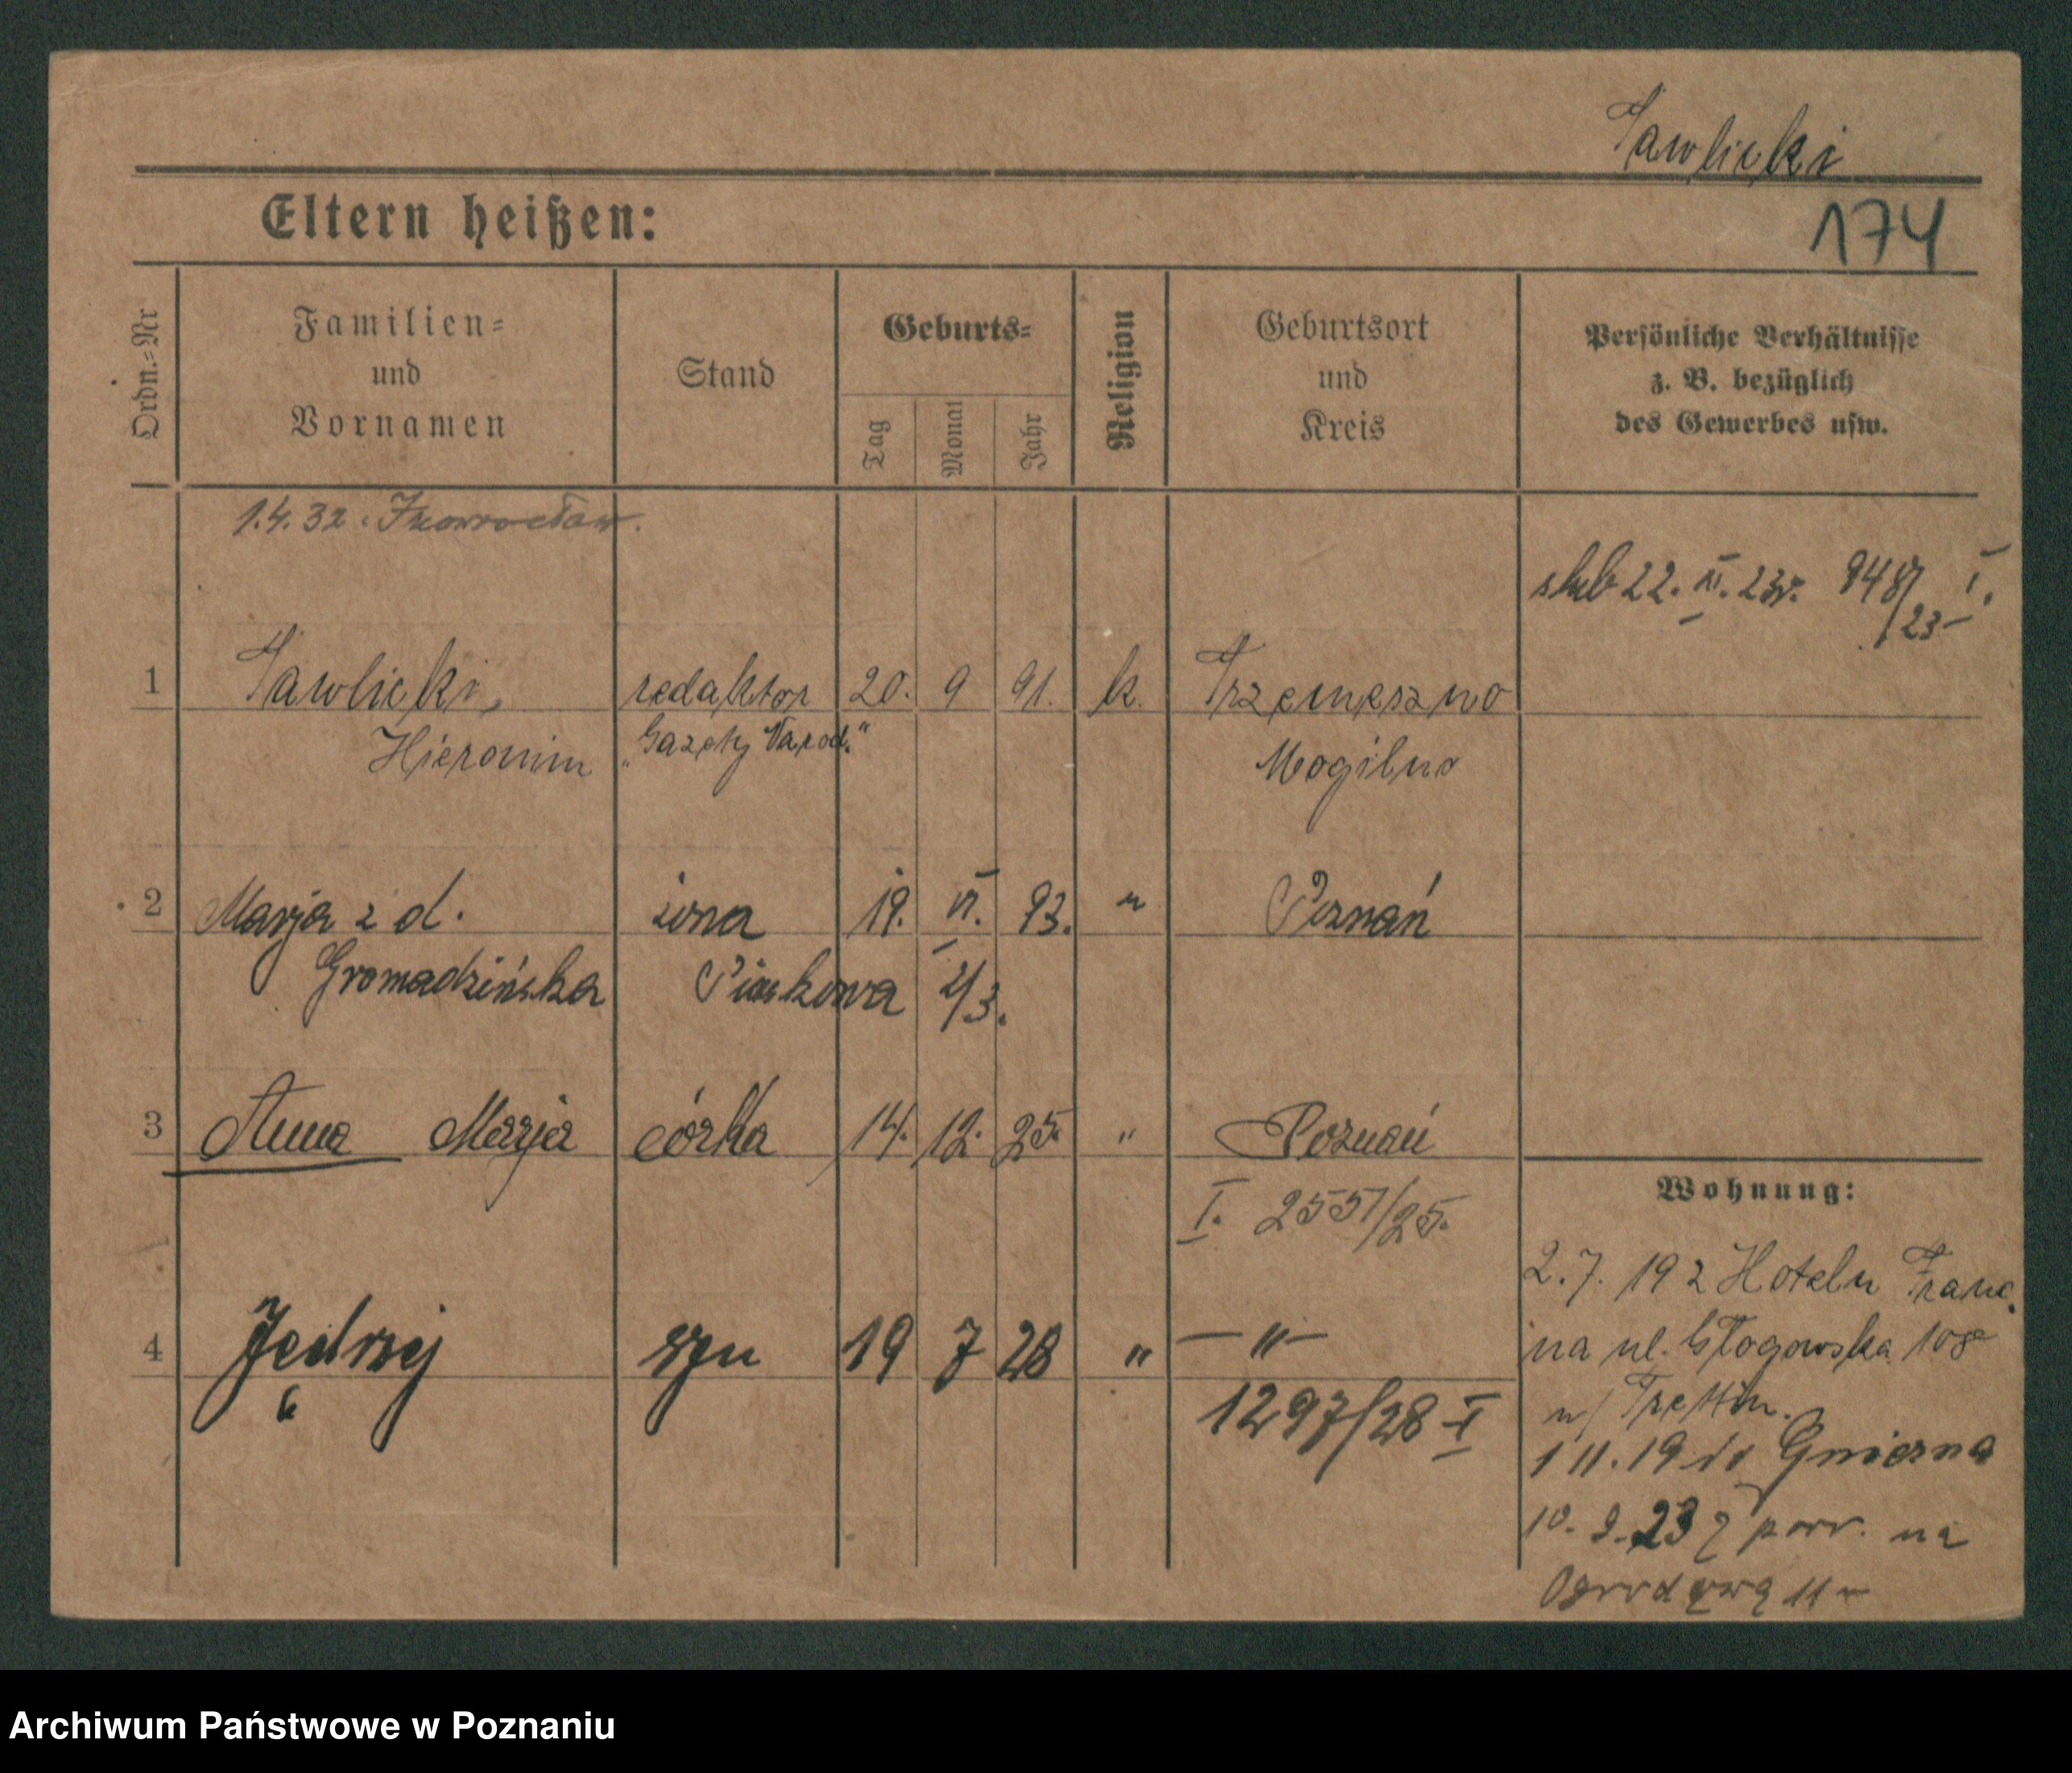 Tawlicki
174
Eltern heißen:
Ordn.=Nr
Familien=
und
Vornamen
Stand
Geburts=
Tag
Monat
Jahr
Religion
Geburtsort
und
Kreis
Persönliche Verhältnisse
z. B. bezüglich
des Gewerbes usw.
1.4.32. Inowrocław.
ślub 22. VI. 23r. 948/23 I.
1 Tawlicki, redaktor 20. 9 91. k. Trzemeszno
Hieronim "Gazety Narod." Mogilno
2 Marja z d. żona 19. VI. 93. " Poznań
Gromadzińska Piaskowa 2/3.
3 Anna Marja córka 14. 12. 25. " Poznań
I. 2557/25.
Wohnung:
2.7.19 z Hotelu Franc.
na ul. Głogowska 108
4 Jędrzej syn 19 7 28 " — " —
u/ Trettin.
1297/28 I
1 11. 19 do Gniezna
10. 9. 23 z pow. na
Ogrodową 11
Archiwum Państwowe w Poznaniu